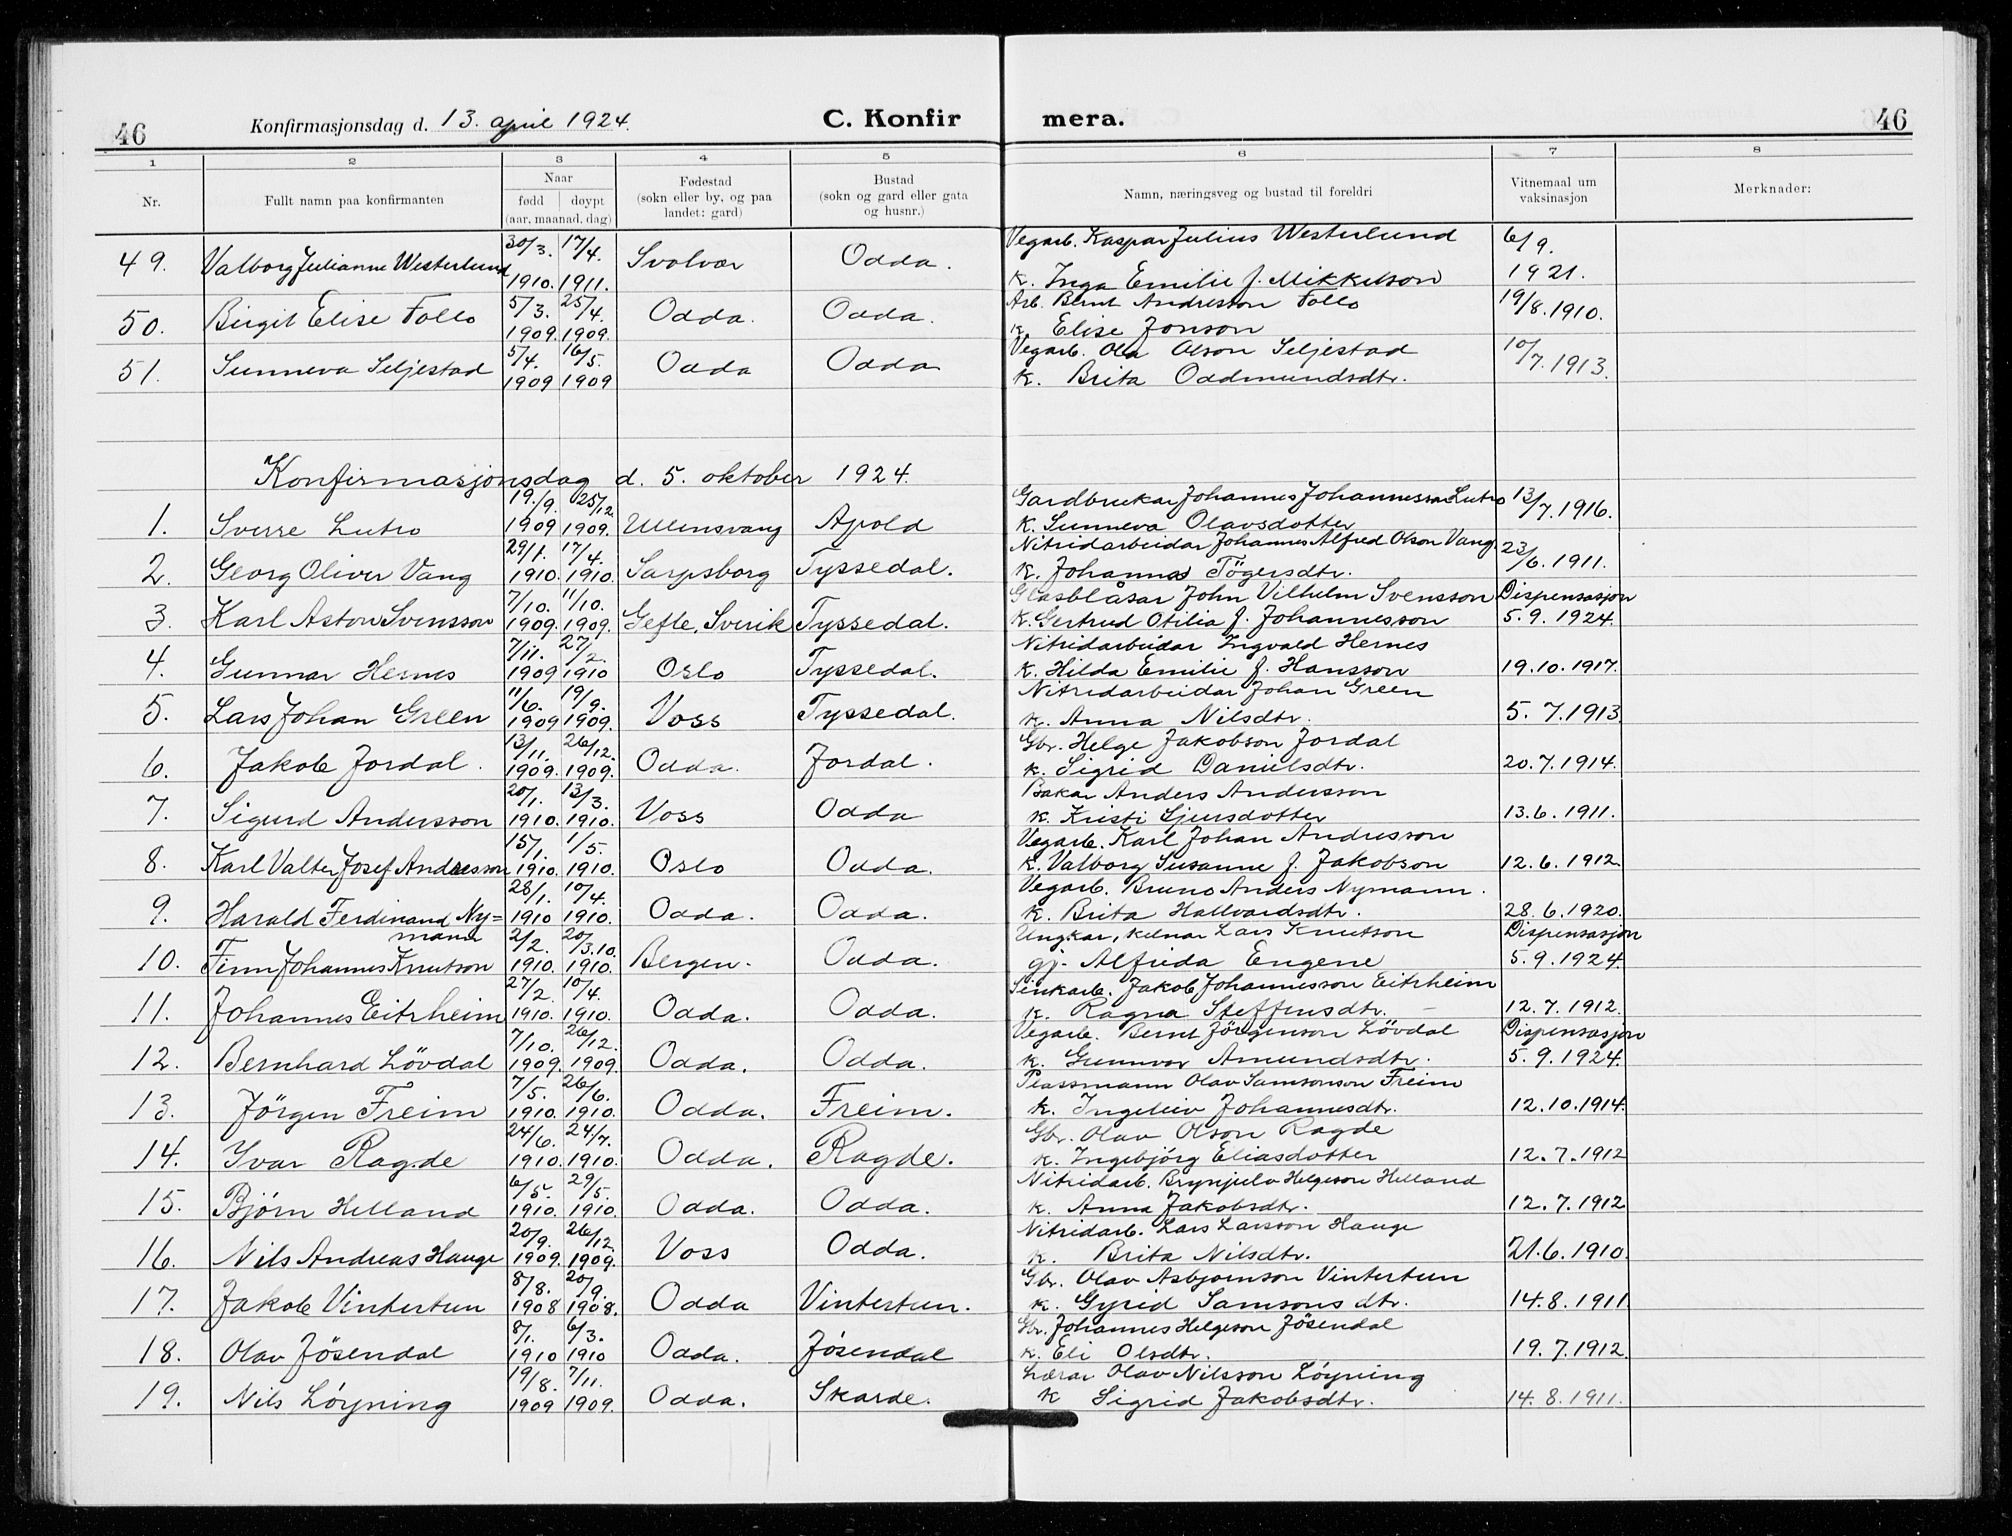 46 Konfirmasjonsdag d. 13. april 1924. C. Konfir mera. 46
1 2 3 4 5 6 7 8
Nr. Fullt namn paa konfirmanten Naar født døypt (aar, maanad, dag) Fødestad (sokn eller by, og paa landet: gard) Bustad (sokn og gard eller gata og husnr.) Namn, næringsveg og bustad til foreldri Vitnemaal um vaksinasjon Merknader:
49. Valborg Julianne Westerlund 30/3. 1910. 17/4. 1911. Svolvær Odda. Vegarb. Kaspar Julius Westerlund 6/9. 1921.
k. Inga Emilie f. Mikkelson
50. Birgit Elise Follo 5/3. 1909. 25/4. 1909. Odda. Odda. Arb. Bernt Andreson Follo 19/8.1910.
k. Elise Jonson
51. Sunneva Seljestad 5/4. 1909 16/5. 1909 Odda Odda Vegarb. Ola Olson Seljestad 10/7.1913.
k. Brita Oddmundsdtr.
Konfirmasjonsdag d. 5. oktober 1924.
1. Sverre Lutro 19./9. 1909 25/12. 1909. Ullensvang Apold Gardbrukar Johannes Johannesson Lutro 13/7.1916.
k. Sunneva Olavsdotter
2. Georg Oliver Vang 29/1. 1910. 17/4. 1910. Sarpsborg Tyssedal. Nitridarbeidar Johannes Alfred Olson Vang 23/6.1911.
k. Johanna Tögersdtr.
3. Karl Aston Svensson 7/10. 1909. 11/10. 1909. Gefle, Sverik Tyssedal. Glasblåsar John Vilhelm Svensson Dispensasjon
k. Gertrud Otilia f. Johannesson 5.9.1924.
4. Gunnar Hernes 7/11. 1909 27/2. 1910 Oslo Tyssedal. Nitridarbeidar Ingvald Hernes
k. Hilda Emilie f. Hansson 19.10.1917.
5. Lars Johan Green 11/6. 1909 19/9. 1909. Voss Tyssedal. Nitridarbeidar Johan Green
k. Anna Nilsdtr. 5.7.1913.
6. Jakob Jordal. 13/11. 1909. 26/12. 1909. Odda. Jordal. Gbr. Helge Jakobson Jordal
k. Sigrid Danielsdtr. 20.7.1914.
7. Sigurd Andersson 20/1. 1910. 13/3. 1910. Voss Odda Bakar Anders Andersson
k. Kristi Sjursdotter 13.6.1911.
8. Karl Valter Josef Andresson 15/1. 1910. 1/5. 1910. Oslo Odda. Vegarb. Karl Johan Andresson
k. Valborg Susanne f. Jakobson 12.6.1912.
9. Harald Ferdinand Ny= 28/1. 1910 10/4. 1910. Odda. Odda. Vegarb. Bruno Anders Nymann.
mann k. Brita Hallvardsdtr. 28.6.1920.
10. Finn Johannes Knutson 2/2. 1910. 20/3.10. 1910. Bergen. Odda. Ungkar, kelnar Lars Knutson Dispensasjon
gj. Alfrida Engene 5.9.1924.
11. Johannes Eitrheim 27/2. 1910. 10/4. 1910. Odda. Odda. Sinkarb. Jakob Johannesson Eitrheim
k. Ragna Steffensdtr. 12.7.1912.
12. Bernhard Lövdal 7/10. 1909. 26/12. 1909. Odda. Odda. Vegarb. Bernt Jörgenson Lövdal Dispensasjon
k. Gunnvor Amundsdtr. 5.9.1924.
13. Jörgen Freim 7/5. 1910. 26/6. 1910. Odda. Freim. Plassmann Olav Samsonson Freim
k. Ingeleiv Johannesdtr. 12.10.1914.
14. Ivar Ragde 24/6. 1910. 24/7. 1910. Odda. Ragde. Gbr. Olav Olson Ragde
k. Ingebjörg Eliasdotter 12.7.1912
15. Bjørn Helland 6/5. 1910. 29/5. 1910. Odda. Odda. Nitridarb. Brynjulv Helgeson Helland
k. Anna Jakobsdtr. 12.7.1912
16. Nils Andreas Hauge 20/9. 1909. 26/12. 1909. Voss Odda. Nitridarb. Lars Larsson Hauge
k. Brita Nilsdtr. 21.6.1910.
17. Jakob Vintertun 8/8. 1908 20/9. 1908. Odda Vintertun. Gbr. Olav Asbjørnson Vintertun
k. Gyrid Samsonsdtr. 14.8.1911.
18. Olav Jösendal 8/1. 1910 6/3. 1910 Odda. Jösendal Gbr. Johannes Helgeson Jösendal
k. Eli Olsdtr. 19.7.1912.
19. Nils Löyning 19/8. 1909 7/11. 1909. Odda. Skarde. Lærar Olav Nilsson Löyning
k Sigrid Jakobsdtr. 14.8.1911.